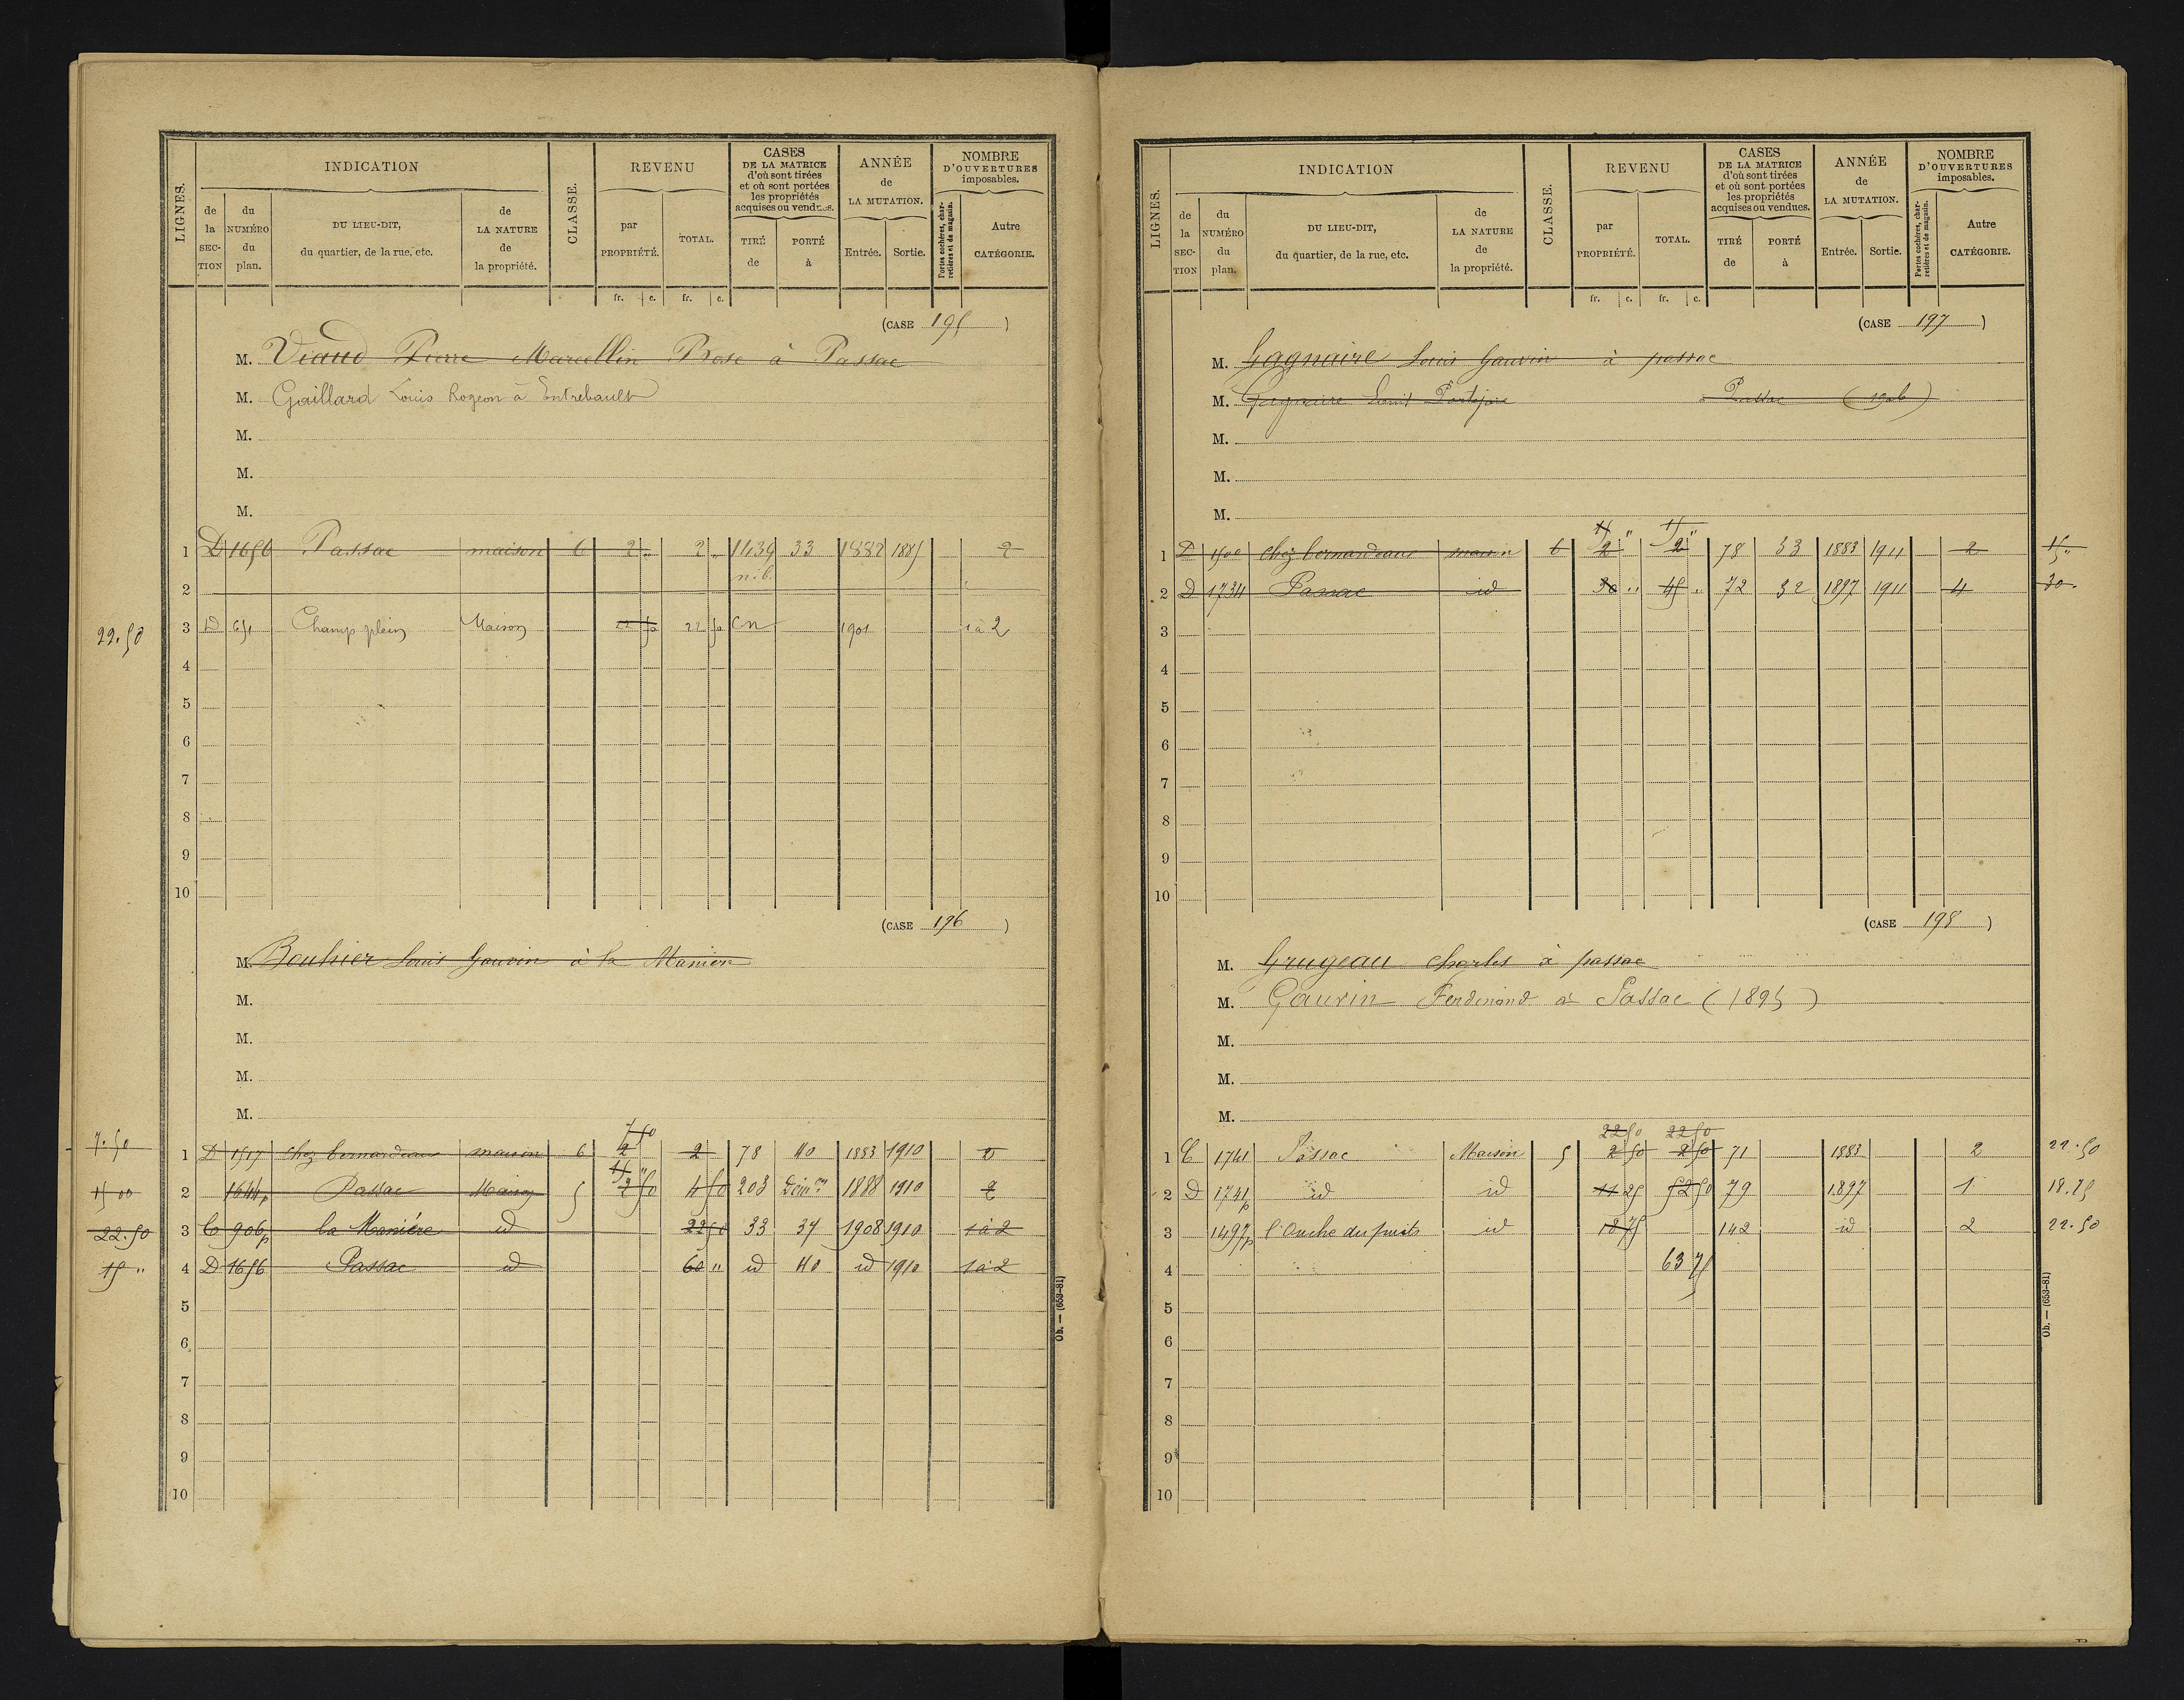 LIGNES. INDICATION CLASSE. REVENU CASES DE LA MATRICE d'où sont tirées et où sont portées les propriétés acquises ou vendues. ANNÉE de LA MUTATION. NOMBRE D'OUVERTURES imposables.
de la SECTION du NUMÉRO du plan. DU LIEU-DIT, du quartier, de la rue, etc. de LA NATURE de la propriété. par PROPRIÉTÉ. TOTAL. TIRÉ de PORTÉ à Entrée. Sortie. Portes cochères, charretières et de magasin. Autre CATÉGORIE.
fr. c. fr. c.
(CASE 195 )
M. Viaud Pierre Marcellin Rose à Passac
M. Gaillard Louis Rogeon à Entrebault
M.
M.
M.
1 D 1656 Passac maison 6 2 " 2 " 1439 33 1882 1885 2
n.b.
2
22.50 3 D 651 Champ plein Maison 22 50 22 50 CN 1901 1 à 2
4
5
6
7
8
9
10
(CASE 196 )
M. Bouhier Louis Gauvin à la Manière
M.
M.
M.
M.
7 50
7.50 1 D 1517 chez bernardeau maison 6 2 2 78 40 1883 1910 2
15 "
15 00 2 1644p Passac Maison 5 2 50 4 50 203 1888 1910 2
22.50 3 C 906p la Manière id 22 50 33 37 1908 1910 1 à 2
15 " 4 D 1656 Passac id 60 " id 40 id 1910 1 à 2
5
6
7
8
9
10
Ob. — (653-81)
LIGNES. INDICATION CLASSE. REVENU CASES DE LA MATRICE d'où sont tirées et où sont portées les propriétés acquises ou vendues. ANNÉE de LA MUTATION. NOMBRE D'OUVERTURES imposables.
de la SECTION du NUMÉRO du plan. DU LIEU-DIT, du quartier, de la rue, etc. de LA NATURE de la propriété. par PROPRIÉTÉ. TOTAL. TIRÉ de PORTÉ à Entrée. Sortie. Portes cochères, charretières et de magasin. Autre CATÉGORIE.
fr. c. fr. c.
(CASE 197 )
M. Gagnaire Louis Gauvin à passac
M. Gagnaire Louis à Passac (1906)
M.
M.
M.
15 " 15 "
1 D 1500 chez bernardeau maison 6 2 2 78 33 1883 1911 2 15 "
2 D 1734 Passac id 30 " 45 " 72 32 1897 1911 4 30.
3
4
5
6
7
8
9
10
(CASE 198 )
M. Grugeau Charles à passac
M. Gauvin Ferdinand à Passac (1895)
M.
M.
M.
22 50 22 50
1 C 1741 Passac Maison 5 2 50 2 50 71 1883 2 22.50
2 D 1741p id id 11 25 52 50 79 1897 1 18.75
3 1497p l'Ouche du puits id 18 75 142 id 2 22.50
4 63 75
5
6
7
8
9
10
Ob. — (653-81)